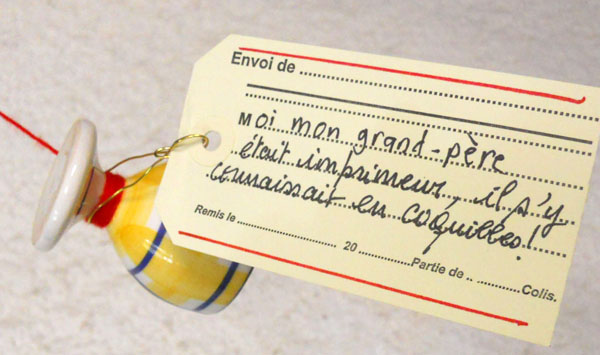 Envoi de
Moi mon grand-père
était imprimeur, il s'y
connaissait en coquilles!
Remis le 20 Partie de Colis.